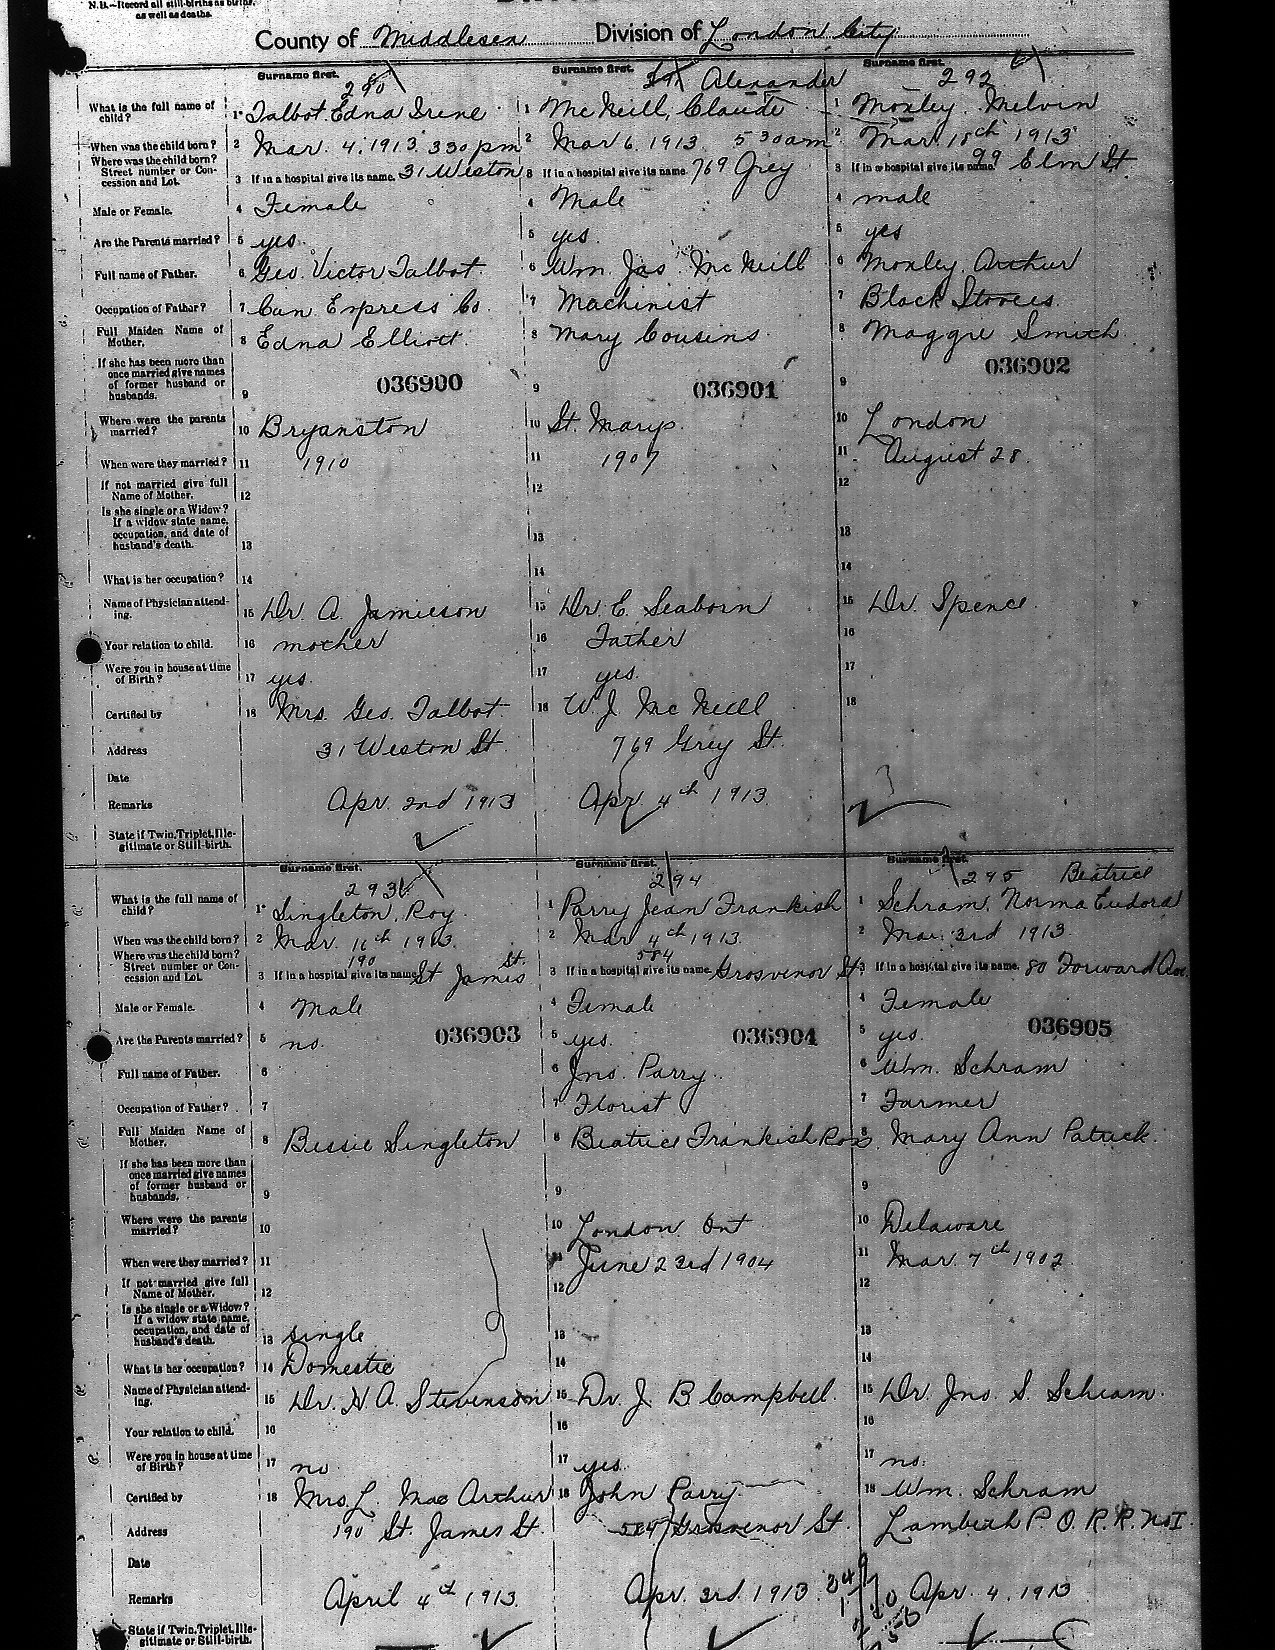 N.B.—Record all still-births as births,
as well as deaths.
County of Middlesex Division of London City
Surname first. Surname first. Surname first.
290 291 Alexander 292
What is the full name of child? 1 Talbot Edna Irene 1 McNeill, Claude 1 Moxley Melvin
When was the child born? 2 Mar. 4, 1913 3 30 pm 2 Mar 6 1913 5 30 am 2 Mar 18th 1913
Where was the child born? Street number or Concession and Lot. 3 If in a hospital give its name. 31 Weston 3 If in a hospital give its name. 769 Grey 3 If in a hospital give its name. 99 Elm St.
Male or Female. 4 Female 4 Male 4 male
Are the Parents married? 5 yes 5 yes. 5 yes
Full name of Father. 6 Geo. Victor Talbot. 6 Wm. Jas. McNeill 6 Moxley Arthur
Occupation of Father? 7 Can Express Co 7 Machinist 7 Black Stoves
Full Maiden Name of Mother. 8 Edna Elliott. 8 Mary Cousins 8 Maggie Smith
If she has been more than once married give names of former husband or husbands. 9 036900 9 036901 9 036902
Where were the parents married? 10 Bryanston 10 St. Marys. 10 London
When were they married? 11 1910 11 1907 11 August 28.
If not married give full Name of Mother. 12 12 12
Is she single or a Widow? If a widow state name, occupation, and date of husband's death. 13 13 13
What is her occupation? 14 14 14
Name of Physician attending. 15 Dr. A. Jamieson 15 Dr E. Seaborn 15 Dr. Spence.
Your relation to child. 16 mother 16 Father 16
Were you in house at time of Birth? 17 yes. 17 yes. 17
Certified by 18 Mrs. Geo. Talbot. 18 W. J. McNeill 18
Address 31 Weston St. 769 Grey St.
Date
Remarks Apr. 2nd 1913 Apr. 4th 1913
State if Twin, Triplet, Illegitimate or Still-birth.
Surname first. Surname first. Surname first.
293 294 295 Beatrice
What is the full name of child? 1 Singleton, Roy. 1 Parry Jean Frankish 1 Schram, Norma Eudora
When was the child born? 2 Mar. 11th 1913. 2 Mar 4th 1913. 2 Mar. 3rd 1913.
Where was the child born? Street number or Concession and Lot. 3 If in a hospital give its name 190 St James St. 3 If in a hospital give its name. 584 Grosvenor St. 3 If in a hospital give its name. 80 Forward Av.
Male or Female. 4 Male 4 Female 4 Female
Are the Parents married? 5 no. 036903 5 yes. 036904 5 yes. 036905
Full name of Father. 6 6 Jno. Parry. 6 Wm. Schram
Occupation of Father? 7 7 Florist 7 Farmer
Full Maiden Name of Mother. 8 Bessie Singleton 8 Beatrice Frankish 8 Mary Ann Patrick.
If she has been more than once married give names of former husband or husbands. 9 9 9
Where were the parents married? 10 10 London Ont 10 Delaware
When were they married? 11 11 June 23rd 1904 11 Mar. 7th 1902
If not married give full Name of Mother. 12 12 12
Is she single or a Widow? If a widow state name, occupation, and date of husband's death. 13 single 13 13
What is her occupation? 14 Domestic 14 14
Name of Physician attending. 15 Dr. H. A. Stevenson 15 Dr. J. B Campbell. 15 Dr Jno. S. Schram.
Your relation to child. 16 16 16
Were you in house at time of Birth? 17 no 17 yes. 17 no.
Certified by 18 Mrs. L. MacArthur 18 John Parry 18 Wm. Schram
Address 190 St. James St. 584 Grosvenor St. Lambeth P.O. R.R. No I
Date
Remarks April 4th 1913. Apr. 3rd. 1913. Apr. 4. 1913
State if Twin, Triplet, Illegitimate or Still-birth.